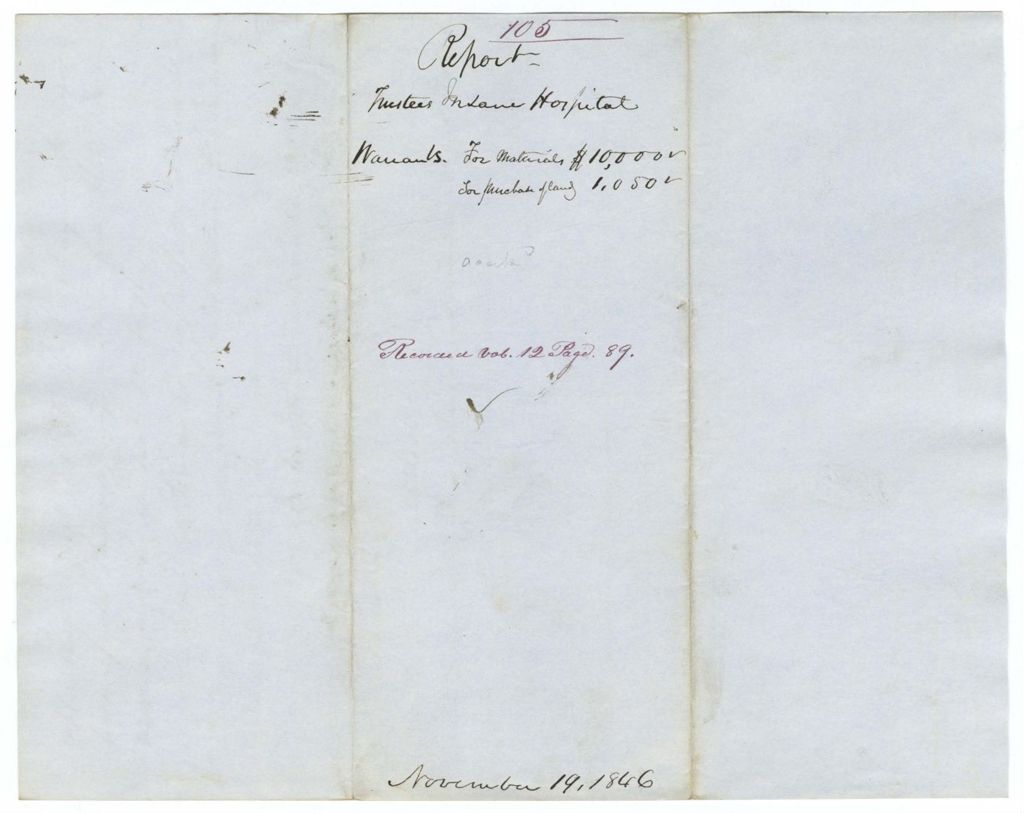 105
Report
Trustees Insane Hospital
Warrants. For Materials $10,000
For purchase of land 1,050
Recorded Vol. 12 Page. 89.
November 19, 1846